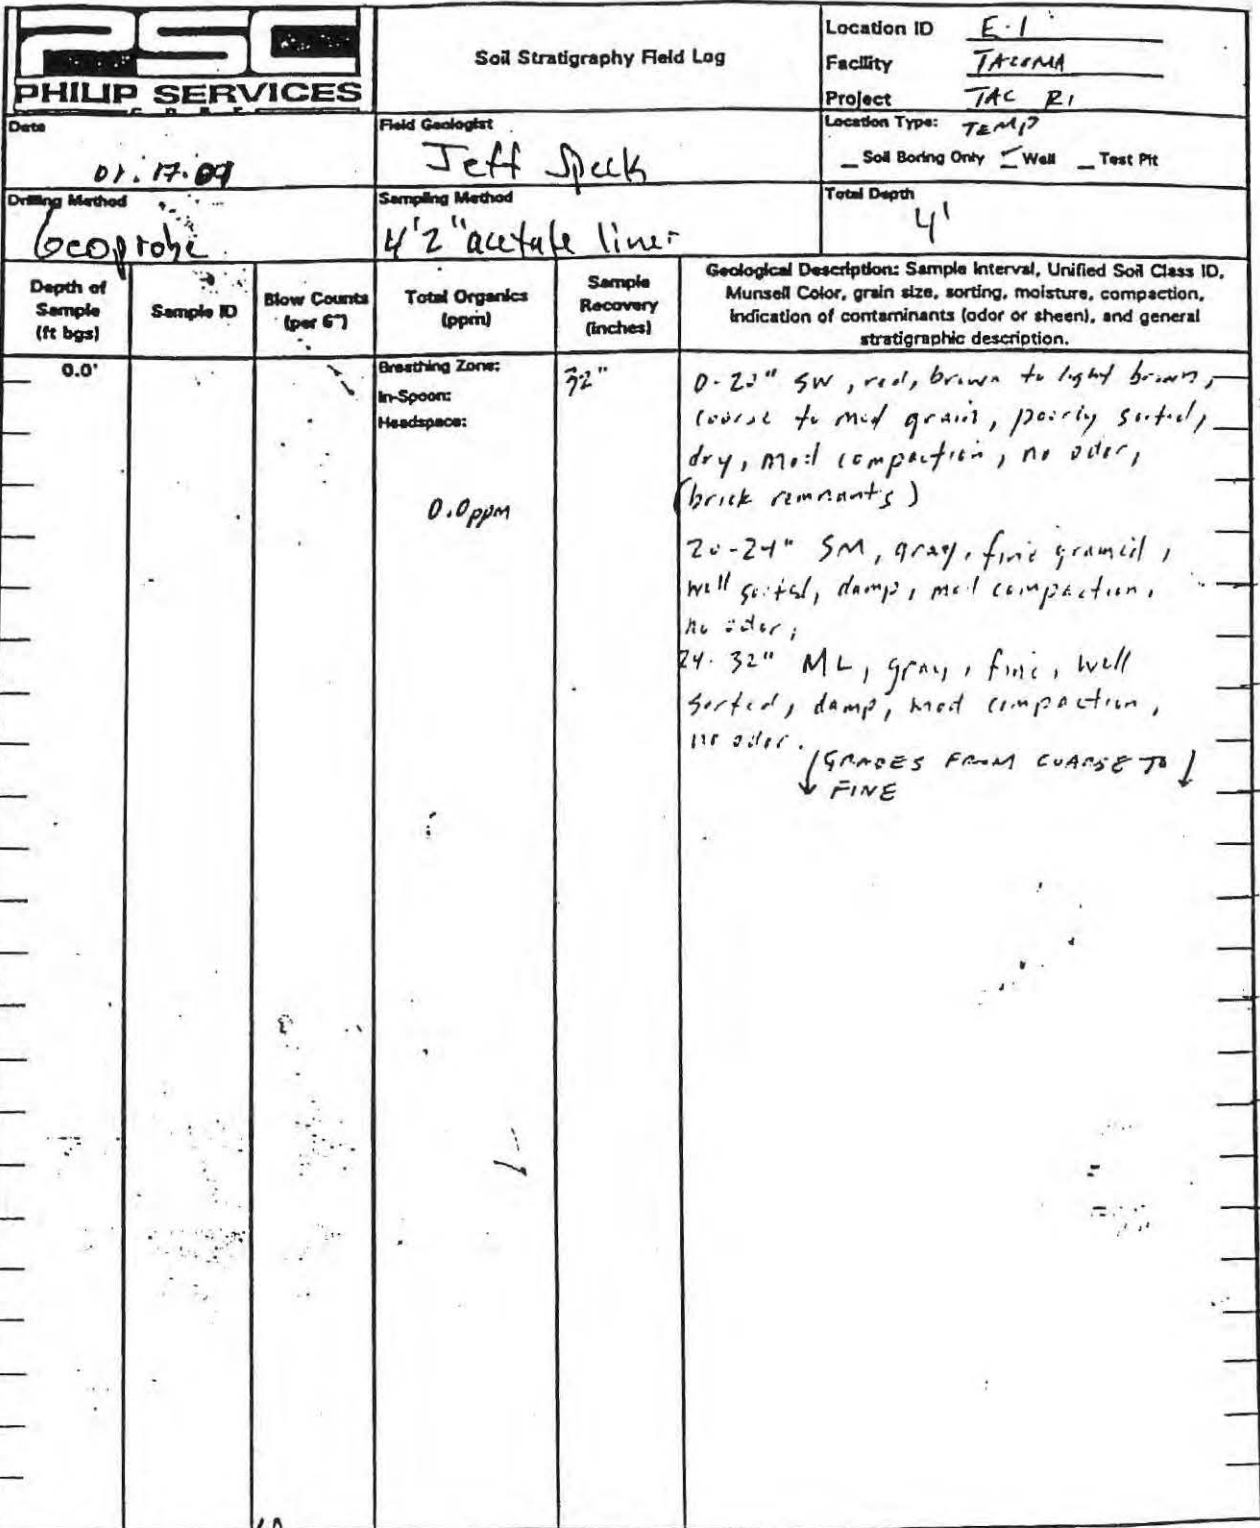 PSC
PHILIP SERVICES
Soil Stratigraphy Field Log
Location ID E-1
Facility TACOMA
Project TAC RI
Date
01.17.09
Field Geologist
Jeff Speck
Location Type: TEMP
_ Soil Boring Only ✓ Well _ Test Pit
Drilling Method
Geoprobe
Sampling Method
4'2" acetate liner
Total Depth
4'
Depth of Sample (ft bgs)
Sample ID
Blow Counts (per 6")
Total Organics (ppm)
Sample Recovery (inches)
Geological Description: Sample Interval, Unified Soil Class ID,
Munsell Color, grain size, sorting, moisture, compaction,
indication of contaminants (odor or sheen), and general
stratigraphic description.
0.0'
Breathing Zone:
In-Spoon:
Headspace:
0.0ppm
32"
0-20" SW, red, brown to light brown,
course to med grain, poorly sorted,
dry, mod compaction, no odor,
(brick remnants)
20-24" SM, gray, fine grained,
well sorted, damp, mod compaction,
no odor,
24-32" ML, gray, fine, well
sorted, damp, mod compaction,
no odor.
↓ GRADES FROM COARSE TO ↓
FINE